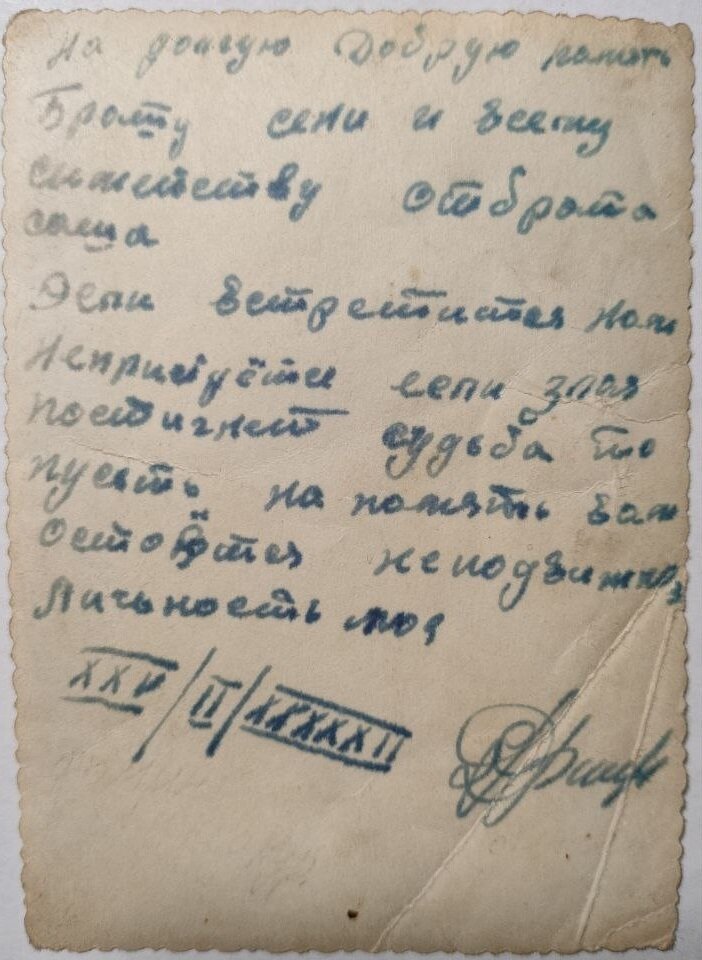 На долгую Добрую память
Брату сени и всему
симейству от брата
саша
Эсли встретится нам
Непридётся если злая
постигнет судьба то
пусть на память вам
остоётся неподвижная
Личьность моя
XXV/II/XXXXXII